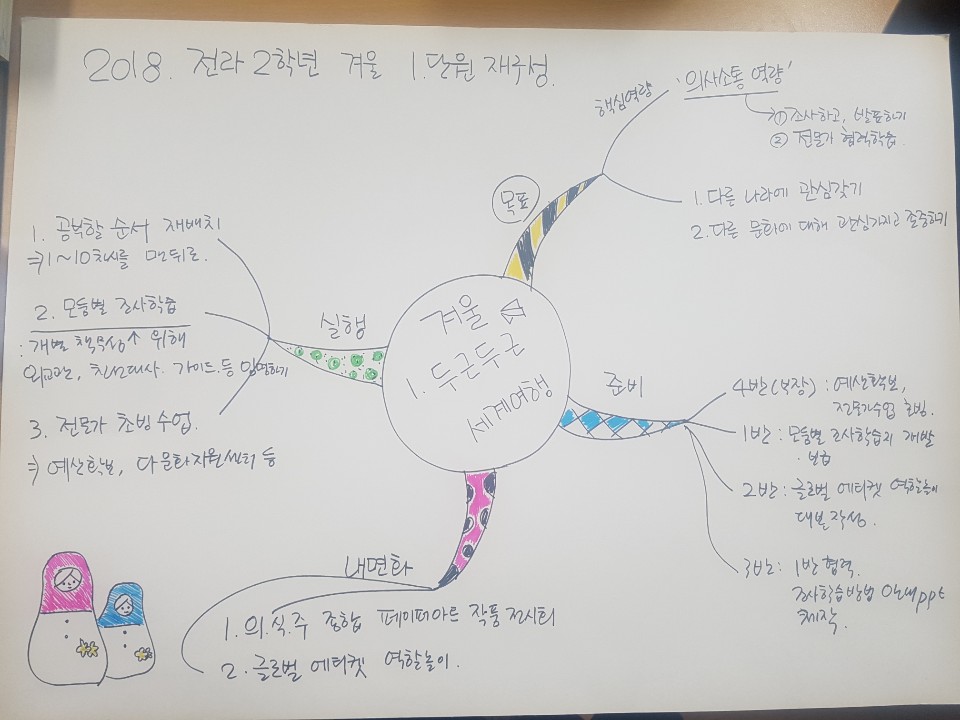 2018. 전라 2학년 겨울 1.단원 재구성.
핵심역량
'의사소통 역량'
① 조사하고, 발표하기
② 전문가 협력학습.
목표
1. 다른 나라에 관심갖기
2. 다른 문화에 대해 관심가지고 존중하기
1. 공부할 순서 재배치
⇒ 1~10차시를 맨뒤로.
2. 모둠별 조사학습
: 개별 책무성↑ 위해
외교관, 친선대사. 가이드.등 임명하기
3. 전문가 초빙 수업.
⇒ 예산확보, 다문화지원센터 등
실행
겨울
1. 두근두근
세계여행
준비
4반(부장) : 예산확보,
전문가수업 초빙.
1반 : 모둠별 조사학습지 개발
· 보급
2반 : 글로벌 에티켓 역할놀이
대본작성.
3반 : 1반 협력.
조사학습방법 안내ppt
제작.
내면화
1. 의.식.주 종합 페이퍼아트 작품 전시회
2. 글로벌 에티켓 역할놀이.